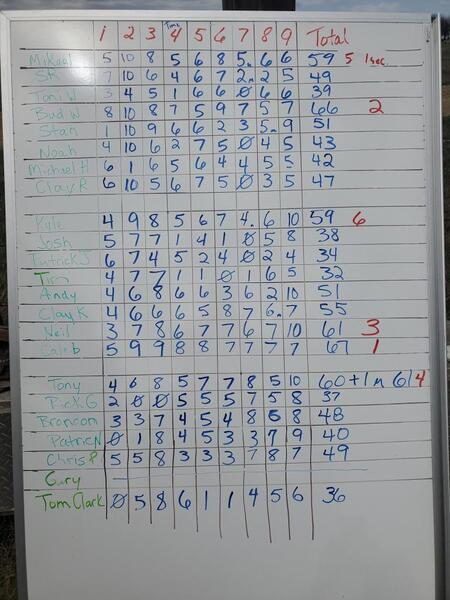 Time
1 2 3 4 5 6 7 8 9 Total
Mikael 5 10 8 5 6 8 5. 6 6 59 5 1sec.
SK 7 10 6 4 6 7 2. 2 5 49
Toni W 3 4 5 1 6 6 Ø 6 6 39
Bud W 8 10 8 7 5 9 7 5 7 66 2
Stan 1 10 9 6 6 2 3 5. 9 51
Noah 4 10 6 2 7 5 Ø 4 5 43
Michael H 6 1 6 5 6 4 4 5 5 42
Clay R 6 10 5 6 7 5 Ø 3 5 47
Kyle 4 9 8 5 6 7 4. 6 10 59 6
Josh 5 7 7 1 4 1 Ø 5 8 38
Patrick J 6 7 4 5 2 4 Ø 2 4 34
Tim 4 7 7 1 1 Ø 1 6 5 32
Andy 4 6 8 6 6 3 6 2 10 51
Clay K 4 6 6 6 5 8 7 6. 7 55
Neil 3 7 8 6 7 7 6 7 10 61 3
Caleb 5 9 9 8 8 7 7 7 7 67 1
Tony 4 6 8 5 7 7 8 5 10 60 + 1 = 61 4
Rick G 2 Ø Ø 5 5 5 7 5 8 37
Brancon 3 3 7 4 5 4 8 6 8 48
Patric N Ø 1 8 4 5 3 3 7 9 40
Chris P. 5 5 8 3 3 3 7 8 7 49
Gary
Tom Clark Ø 5 8 6 1 1 4 5 6 36